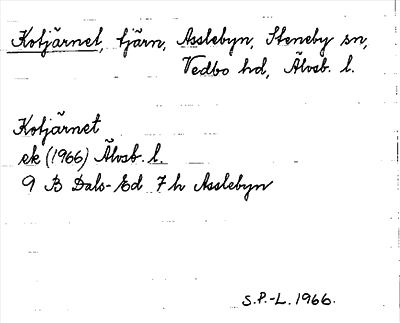 Kotjärnet, tjärn, Asslebyn, Steneby sn,
Vedbo hd, Älvsb. l.
Kotjärnet
ek (1966) Älvsb. l.
9 B Dals-Ed 7 h Asslebyn
S.P.-L. 1966.